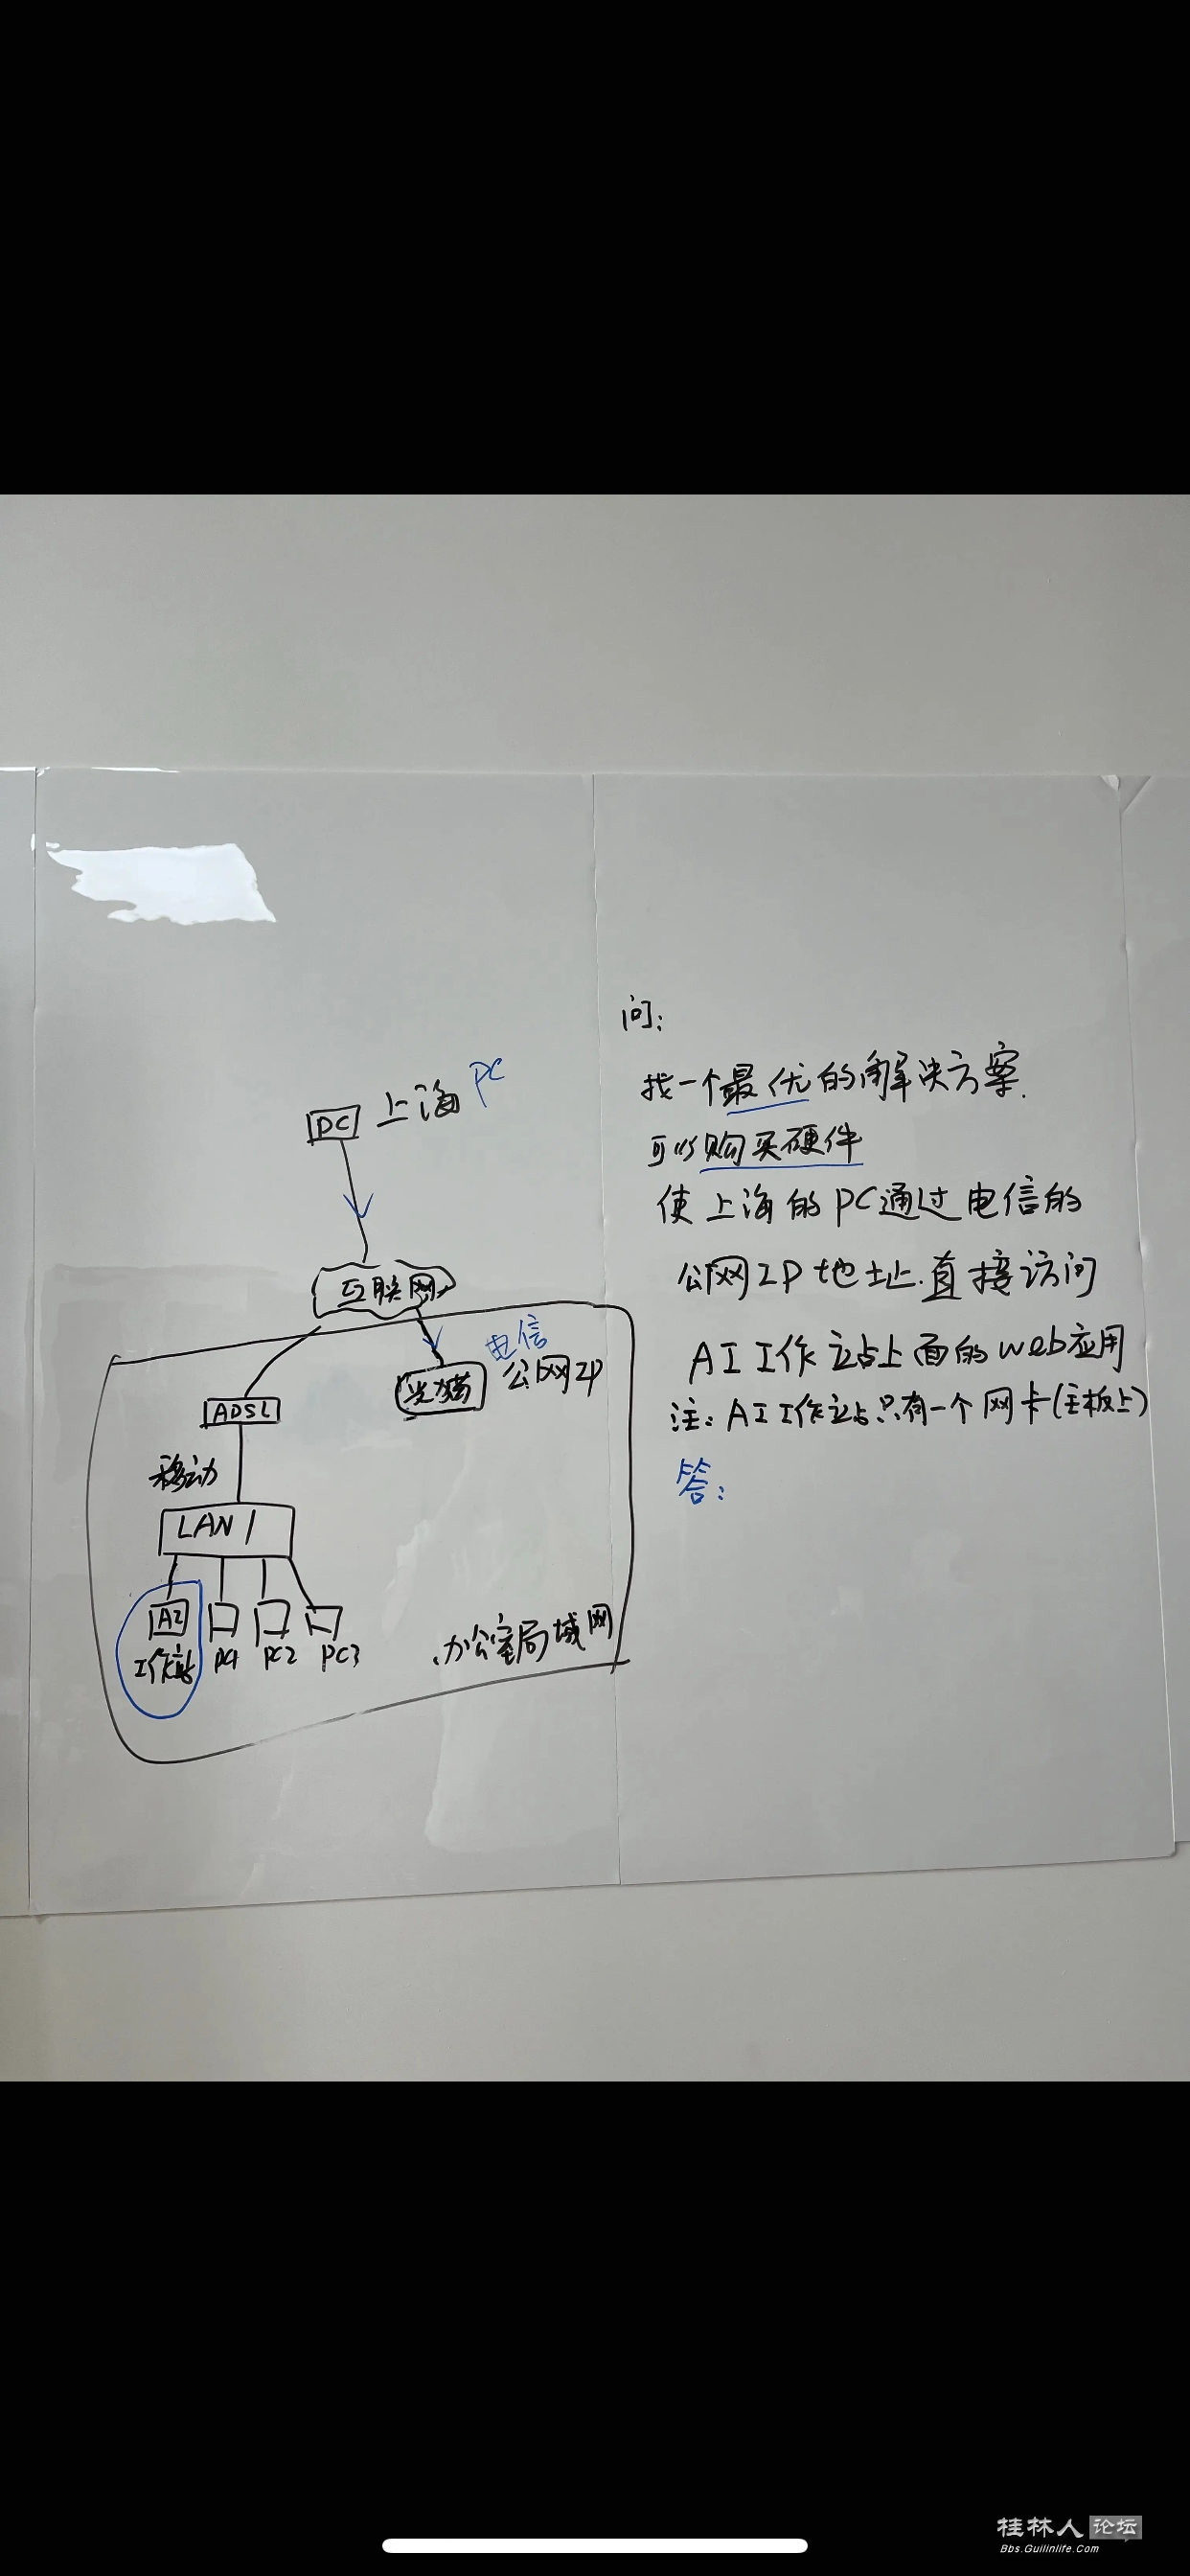 问:
找一个最优的解决方案.
可以购买硬件
使上海的PC通过电信的
公网IP地址.直接访问
AI工作站上面的web应用
注:AI工作站只有一个网卡(主板上)
答:
PC 上海 PC
互联网
电信
光猫 公网IP
ADSL
移动
LAN 1
AI
工作站 PC1 PC2 PC3
办公室局域网
桂林人论坛
Bbs.Guilinlife.Com